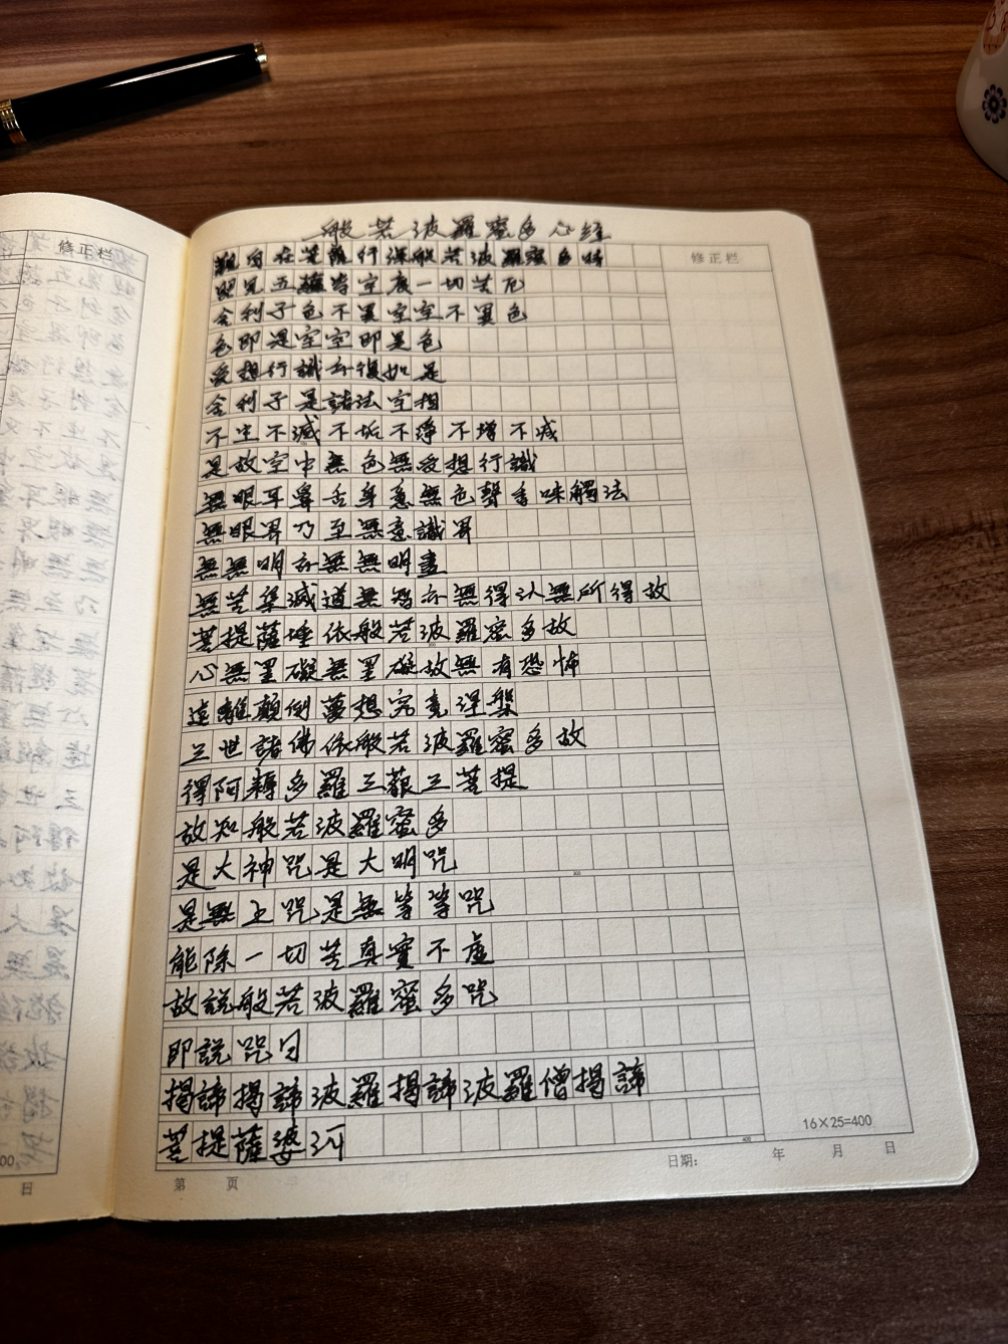 般若波羅蜜多心經
觀自在菩薩行深般若波羅蜜多時
照見五蘊皆空度一切苦厄
舍利子色不異空空不異色
色即是空空即是色
受想行識亦復如是
舍利子是諸法空相
不生不滅不垢不淨不增不減
是故空中無色無受想行識
無眼耳鼻舌身意無色聲香味觸法
無眼界乃至無意識界
無無明亦無無明盡
無苦集滅道無智亦無得以無所得故
菩提薩埵依般若波羅蜜多故
心無罣礙無罣礙故無有恐怖
遠離顛倒夢想究竟涅槃
三世諸佛依般若波羅蜜多故
得阿耨多羅三藐三菩提
故知般若波羅蜜多
是大神咒是大明咒
是無上咒是無等等咒
能除一切苦真實不虛
故說般若波羅蜜多咒
即說咒曰
揭諦揭諦波羅揭諦波羅僧揭諦
菩提薩婆訶
修正栏
修正栏
16×25=400
第 页
日期: 年 月 日
日